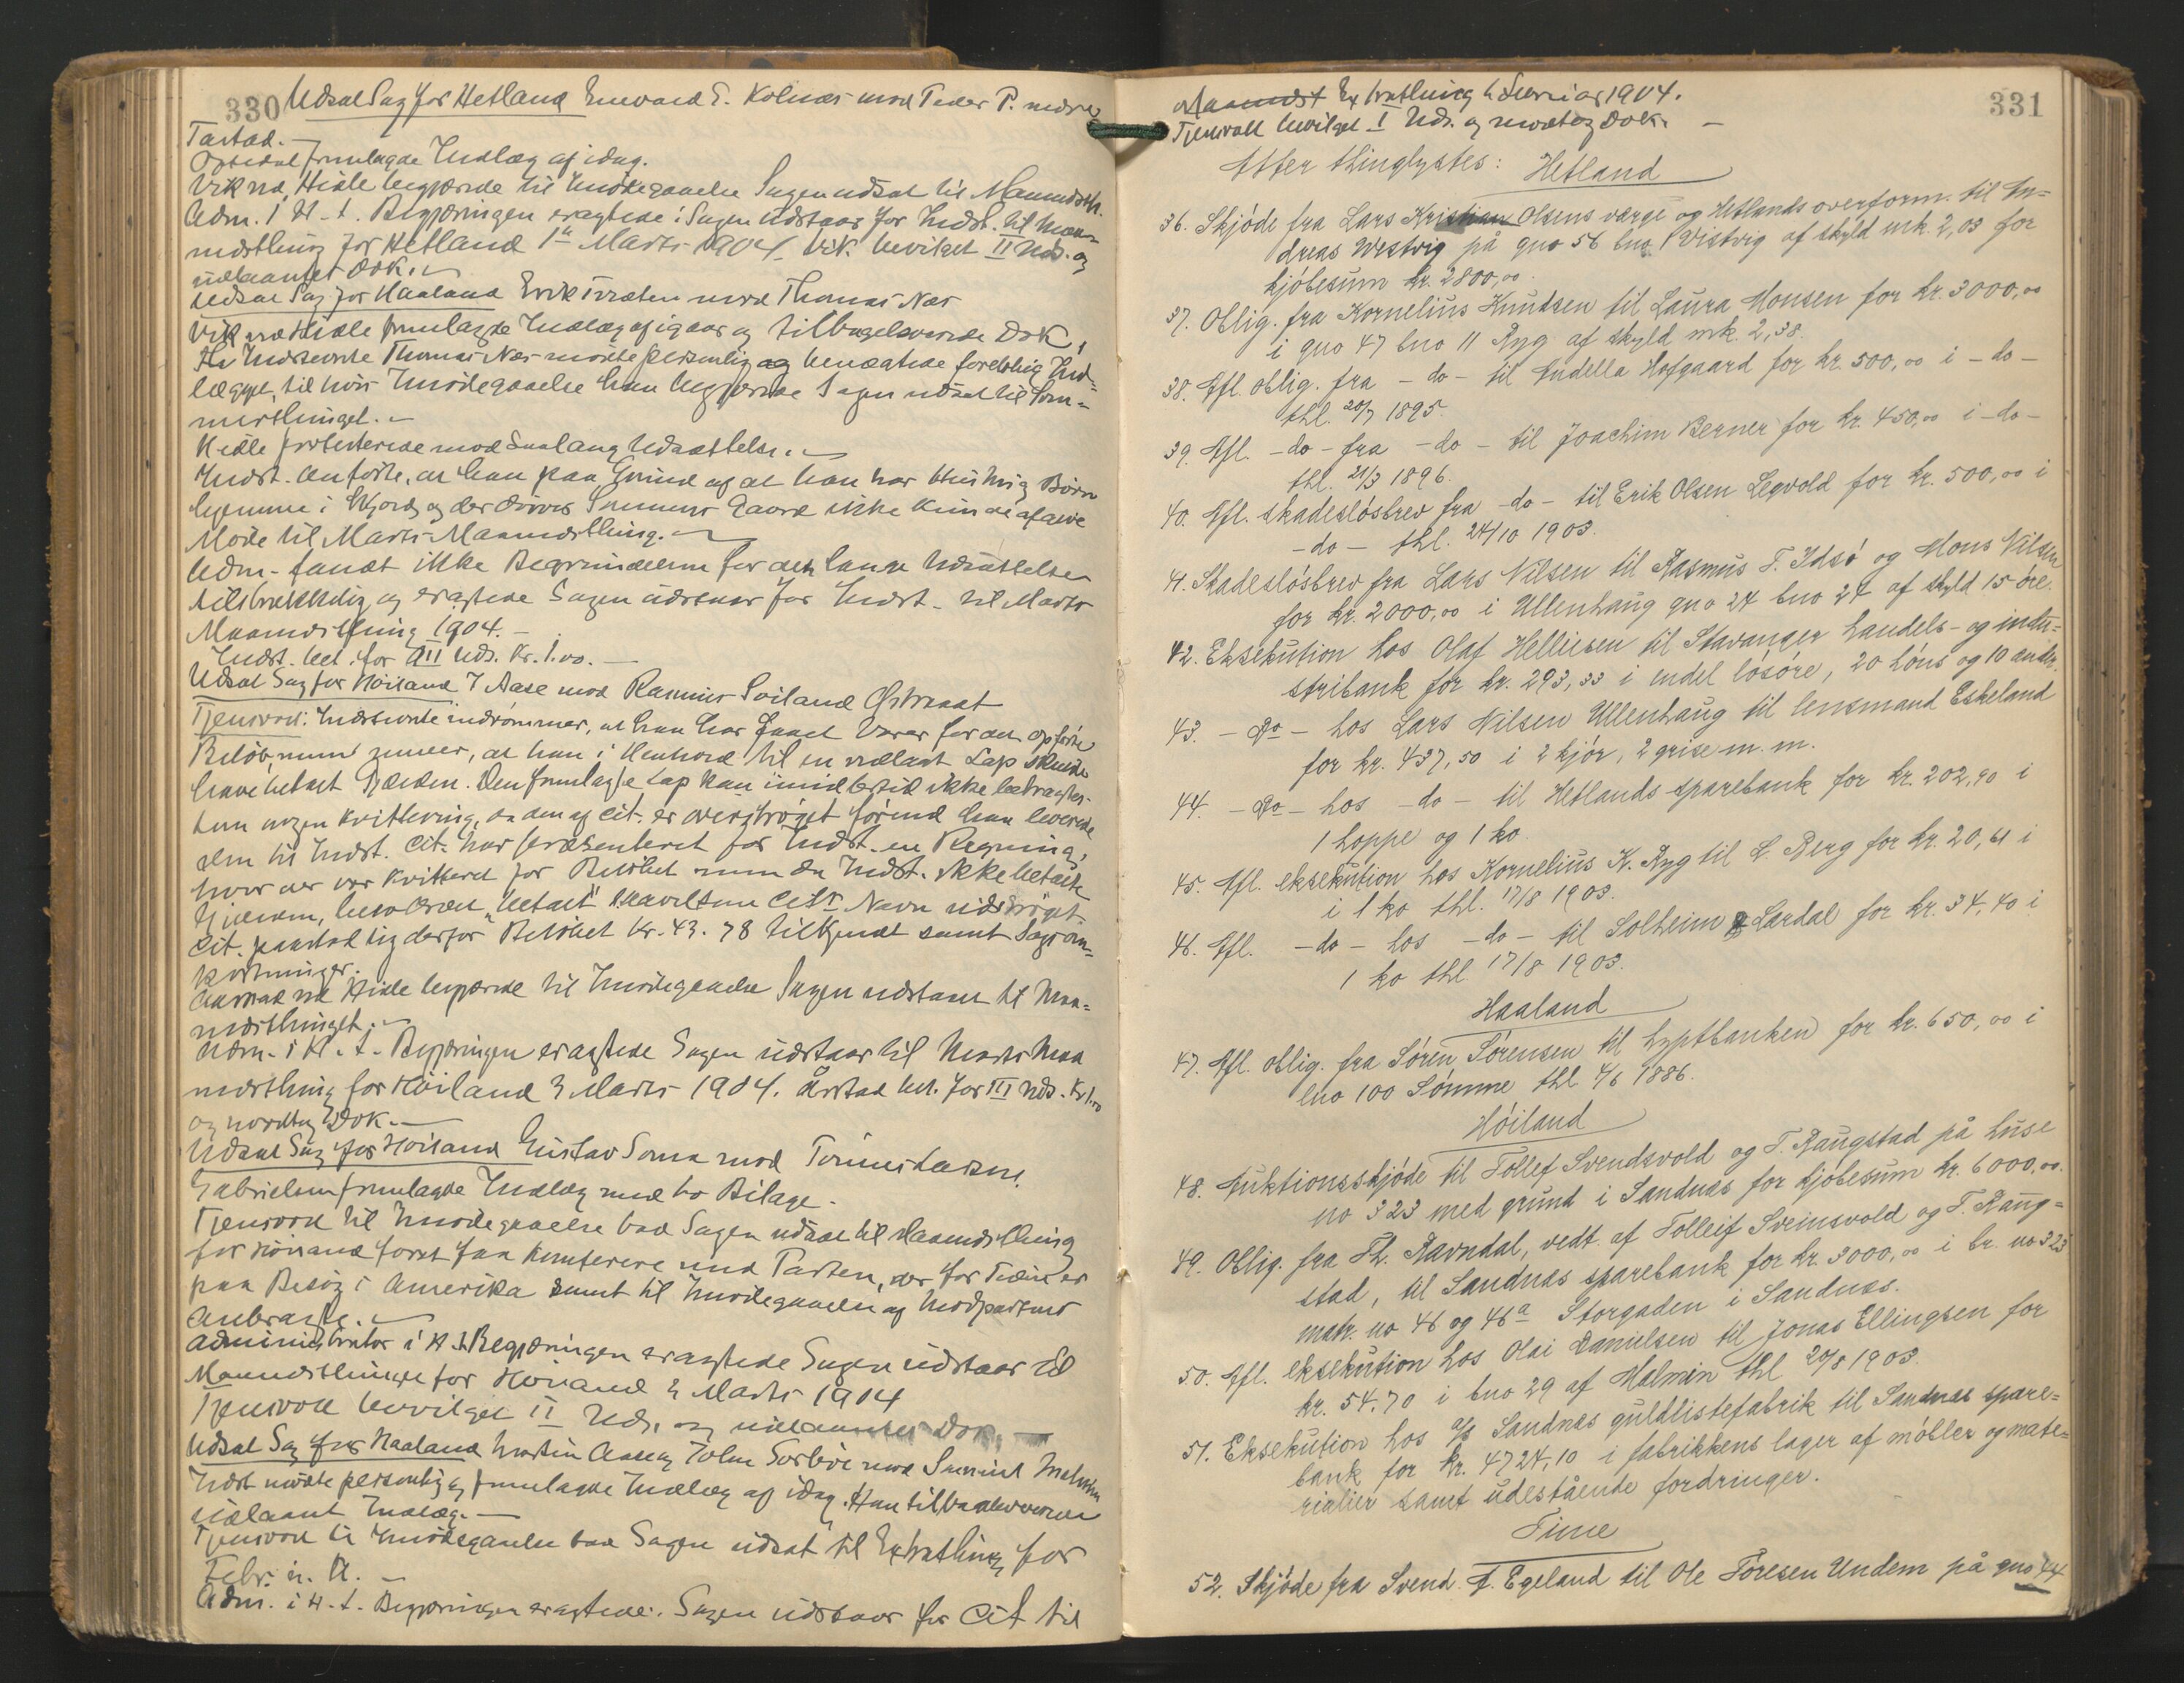 330 Udsat Sag for Hetland Enevald E. Kolnæs mod Peder P. nedre
Tastad.
Opsedal fremlagde Indlæg af idag.
Vik ved Hidle begjærede til Imødegaaelse Sagen udsat til Maanedsth.
Adm. i H. t. Begjæringen eragtede: Sagen udstaar for Indst. til Maa-
nedsthing for Hetland 1ste Marts 1904. Vik bevilget II Uds. og
udlaantes Dok.
Udsat Sag for Haaland Erik Træten mod Thomas Næs
Vik ved Hidle fremlagde Indlæg af igaar og tilbageleverede Dok.
Indstevnte Thomas Næs mødte personlig og benægtede foreløbig Ind-
lægget, til hvis Imødegaaelse han begjærede Sagen udsat til Som-
merthinget.
Hidle protesterede mod saa lang Udsættelse.
Indst. anførte, at han paa Grund af at han har Hustru og Børn
hjemme i og der drives Gaard ikke kunde afgive
Møde til Marts Maanedsthing.
Adm. fandt ikke Begrundelsen for den lange Udsættelse
tilstrækkelig og eragtede Sagen udstaar for Indst. til Marts
Maanedsthing 1904.
Indst. bet. for II Uds. Kr. 1.00.
Udsat Sag for Høiland T Aase mod Rasmus Soiland Østraat
Tjensvoll: Indstevnte indrømmer, at han har faaet Varer for det opførte
Beløb, men mener, at han i Henhold til en vedlagt Lap skulde
have betalt Gjælden. Den fremlagte Lap kan imidlertid ikke betragtes
som nogen Kvittering, da den af Cit. er overstrøget førend han leverede
den til Indst. Cit. har præsenteret for Indst. en Regning,
hvor der var kvitteret for Beløbet men da Indst. ikke betalte
Gjælden, blev Ordet "betalt" saavelsom Cits Navn udstrøget.
Cit. paastod sig derfor Beløbet Kr. 43.78 tilkjendt samt Sagsom-
kostninger.
Aarstad ved Hidle begjærede til Imødegaaelse Sagen udstaar til Maa-
nedsthinget.
Adm. i H. t. Begjæringen eragtede Sagen udstaar til Marts Maa
nedsthing for Høiland 3 Marts 1904. Årstad bet. for III Uds. Kr 1.00
og modtog Dok.
Udsat Sag for Høiland Gustav Soma mod Tønnes
Gabrielsen fremlagde Indlæg med to Bilage.
Tjensvoll til Imødegaaelse bad Sagen udsat til Maanedsthing
for Høiland foret faa konferere med Parten, der for Tiden er
paa Besøg i Amerika samt til Imødegaaelse af Modpartens
Anbragte.
Administrator i H. t. Begjæringen eragtede Sagen udstaar til
Maanedsthinget for Høiland 3 Marts 1904
Tjensvoll bevilget II Uds. og udlaantes Dok.
Udsat Sag for Haaland Martin Aase og John Sørbø mod Melvin
Indst mødte personlig og fremlagde Indlæg af idag. Han tilbageleverede
udlaant Indlæg.
Tjensvoll til Imødegaaelse bad Sagen udsat til Extrathing for
Febr. n. A.
Adm. i H. t. Begjæringen eragtede: Sagen udstaar for Cit til
331
Maanedst Extrathing Februar 1904.
Tjensvoll bevilget I Uds. og modtog Dok.
Atter thinglystes: Hetland
36. Skjøde fra Lars Kristian Olsens værge og Hetlands overform. til An=
dreas Westvig på gno 56 bno 1 Vistvig af skyld mk. 2,03 for
kjøbesum kr. 2800,00.
37. Oblig. fra Kornelius Knudsen til Laura Monsen for kr. 3000,00
i gno 47 bno 11 Ryg af skyld mk. 2,38.
38. Afl. oblig. fra - do - til Andella Hofgaard for kr. 500,00 i - do -
thl. 20/7 1895.
39. Afl. - do - fra - do - til Joachim Berner for kr. 450,00 i - do -
thl. 21/3 1896.
40. Afl. skadesløsbrev fra - do - til Erik Olsen Legvold for kr. 500,00 i
- do - thl. 24/10 1903.
41. Skadesløsbrev fra Lars Nilsen til Rasmus T. Idsø og Mons Nilsen
for kr. 2000,00 i Ullenhaug gno 24 bno 24 af skyld 15 øre.
42. Eksekution hos Olaf Helliesen til Stavanger handels- og indu=
stribank for kr. 293,33 i endel løsøre, 20 høns og 10 ander.
43. - Do - hos Lars Nilsen Ullenhaug til lensmand Eskeland
for kr. 437,50 i 2 kjør, 2 grise m. m.
44. - Do - hos - do - til Hetlands sparebank for kr. 202,90 i
1 hoppe og 1 ko.
45. Afl. eksekution hos Kornelius K. Ryg til L. Berg for kr. 20,61 i
i 1 ko thl. 17/8 1903.
46. Afl. - do - hos - do - til Solheim & Lardal for kr. 34,40 i
1 ko thl. 17/8 1903.
Haaland
47. Afl. oblig. fra Søren Sørensen til hyptbanken for kr. 650,00 i
bno 100 Sømme thl 4/6 1886.
Høiland
48. Auktionsskjøde til Tollef Svendsvold og T. Raugstad på huse
no 323 med grund i Sandnæs for kjøbesum kr. 6000,00.
49. Oblig. fra Th. Ravndal, vedt. af Tolleif Sveinsvold og T. Raug=
stad, til Sandnæs sparebank for kr. 3000,00 i br. no 323
matr. no 46 og 46a Storgaden i Sandnæs.
50. Afl. eksekution hos Olai Danielsen til Jonas Ellingsen for
kr. 54,70 i bno 29 af Malmin thl 20/8 1903.
51. Eksekution hos a/s Sandnæs guldlistefabrik til Sandnæs spare=
bank for kr. 4724,10 i fabrikkens lager af møbler og mate=
rialier samt udestående fordringer.
Time
52. Skjøde fra Svend F. Egeland til Ole Toresen Undem på gno 44